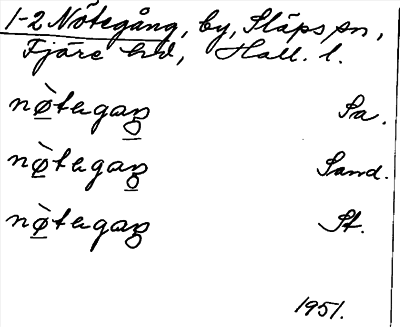 1-2 Nötegång, by, Släps sn,
Fjäre hd, Hall. l.
nø̀tegaŋ Sa.
nø̀tegaŋ Sand.
nø̀tegaŋ St.
1951.